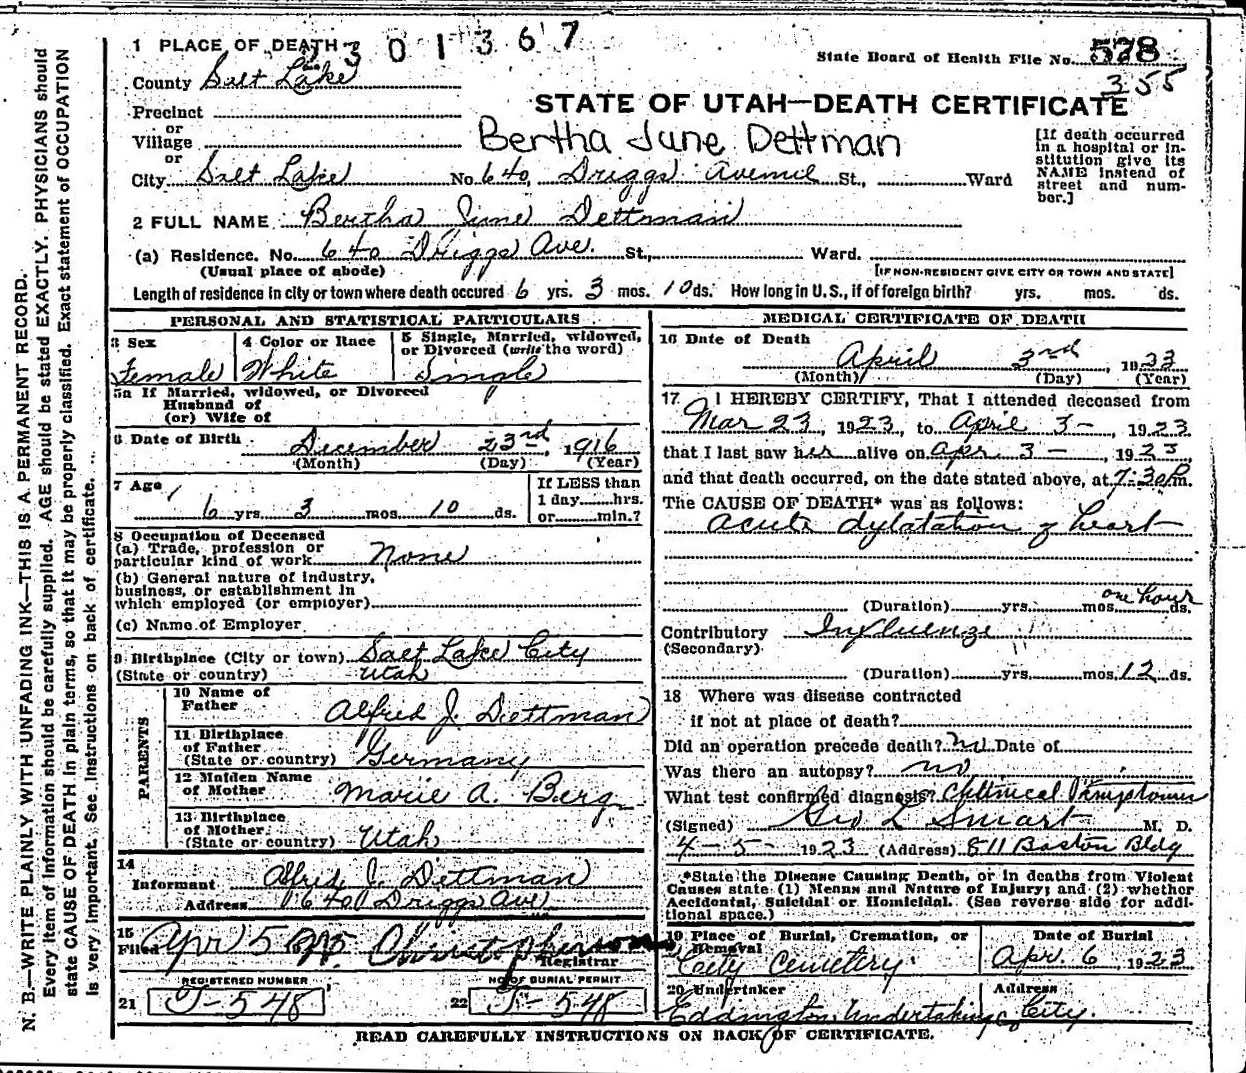 1 PLACE OF DEATH 2301367
State Board of Health File No. 578
County Salt Lake
355
STATE OF UTAH—DEATH CERTIFICATE
Precinct
or
Village
Bertha June Dettman
or
City Salt Lake No. 640, Driggs Avenue St., Ward
[If death occurred in a hospital or institution give its NAME instead of street and number.]
2 FULL NAME Bertha June Dettman
(a) Residence. No. 640 Driggs Ave. St., Ward.
(Usual place of abode) [IF NON-RESIDENT GIVE CITY OR TOWN AND STATE]
Length of residence in city or town where death occured 6 yrs. 3 mos. 10 ds. How long in U.S., if of foreign birth? yrs. mos. ds.
PERSONAL AND STATISTICAL PARTICULARS
3 Sex
Female
4 Color or Race
White
5 Single, Married, widowed,
or Divorced (write the word)
Single
5a If Married, widowed, or Divorced
Husband of
(or) Wife of
6 Date of Birth December 23rd, 1916
(Month) (Day) (Year)
7 Age
6 yrs. 3 mos. 10 ds.
If LESS than
1 day hrs.
or min.?
8 Occupation of Deceased
(a) Trade, profession or
particular kind of work None
(b) General nature of industry,
business, or establishment in
which employed (or employer)
(c) Name of Employer
9 Birthplace (City or town) Salt Lake City
(State or country) Utah
PARENTS
10 Name of
Father Alfred J. Dettman
11 Birthplace
of Father
(State or country) Germany
12 Maiden Name
of Mother Marie A. Berg
13 Birthplace
of Mother
(State or country) Utah
14
Informant Alfred J. Dettman
Address 640 Driggs Ave
15
Filed Apr 5 Christopherson
Registrar
REGISTERED NUMBER NO. OF BURIAL PERMIT
21 J-548 22 J-548
MEDICAL CERTIFICATE OF DEATH
16 Date of Death
April 3rd, 1923
(Month) (Day) (Year)
17 I HEREBY CERTIFY, That I attended deceased from
Mar 23, 1923, to April 3-, 1923
that I last saw her alive on Apr. 3-, 1923,
and that death occurred, on the date stated above, at 7:30 P.m.
The CAUSE OF DEATH* was as follows:
acute dylatation of heart
(Duration) yrs. mos. one hour ds.
Contributory Influenze
(Secondary)
(Duration) yrs. mos. 12 ds.
18 Where was disease contracted
if not at place of death?
Did an operation precede death? no Date of
Was there an autopsy? no
What test confirmed diagnosis? Clinical Symptoms
(Signed) Geo L Smart M. D.
4-5- 1923 (Address) 811 Boston Bldg
*State the Disease Causing Death, or in deaths from Violent
Causes state (1) Menns and Nature of Injury; and (2) whether
Accidental, Suicidal or Homicidal. (See reverse side for addi-
tional space.)
19 Place of Burial, Cremation, or
Removal
City Cemetery
Date of Burial
Apr. 6, 1923
20 Undertaker
Eddington Undertaking Co
Address
City.
READ CAREFULLY INSTRUCTIONS ON BACK OF CERTIFICATE.
N. B.—WRITE PLAINLY WITH UNFADING INK—THIS IS A PERMANENT RECORD.
Every item of information should be carefully supplied. AGE should be stated EXACTLY. PHYSICIANS should
state CAUSE OF DEATH in plain terms, so that it may be properly classified. Exact statement of OCCUPATION
is very important. See Instructions on back of certificate.